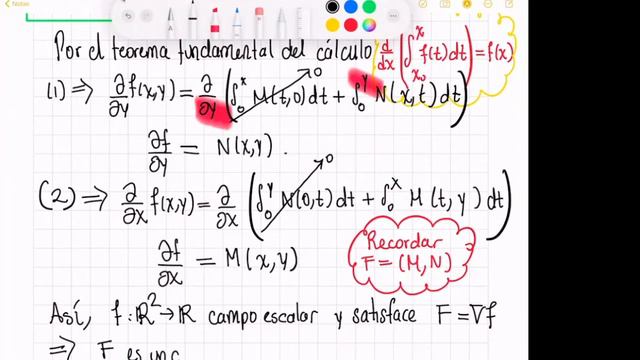 Notes
Por el teorema fundamental del cálculo d/dx (∫_{x₀}^{x} f(t)dt) = f(x)
(1) ⇒ ∂/∂y f(x,y) = ∂/∂y (∫_0^x M(t,0)dt + ∫_0^y N(x,t)dt) 0
∂f/∂y = N(x,y).
(2) ⇒ ∂/∂x f(x,y) = ∂/∂x (∫_0^y N(0,t)dt + ∫_0^x M(t,y)dt) 0
∂f/∂x = M(x,y)
Recordar
F = (M,N)
Así, f: ℝ² → ℝ campo escalar y satisface F = ∇f
⇒ F es un c